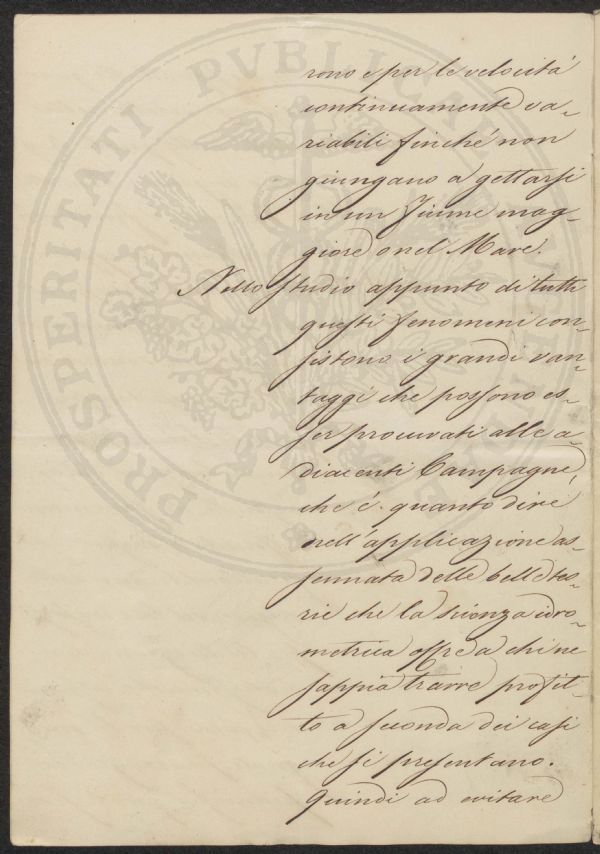 rono e per le velocità
continuamente va-
riabili finché non
giungano a gettarsi
in un Fiume mag-
giore o nel Mare.
Nello studio appunto di tutti
questi fenomeni con-
sistono i grandi van-
taggi che possono es-
ser procurati alle a-
diacenti Campagne,
che é quanto dire
nell'applicazione as-
sennata delle belle teo-
rie che la scienza idro-
metrica offre a chi ne
sappia trarre profit-
to a seconda dei casi
che si presentano.
Quindi ad evitare
PROSPERITATI PVBLICAE